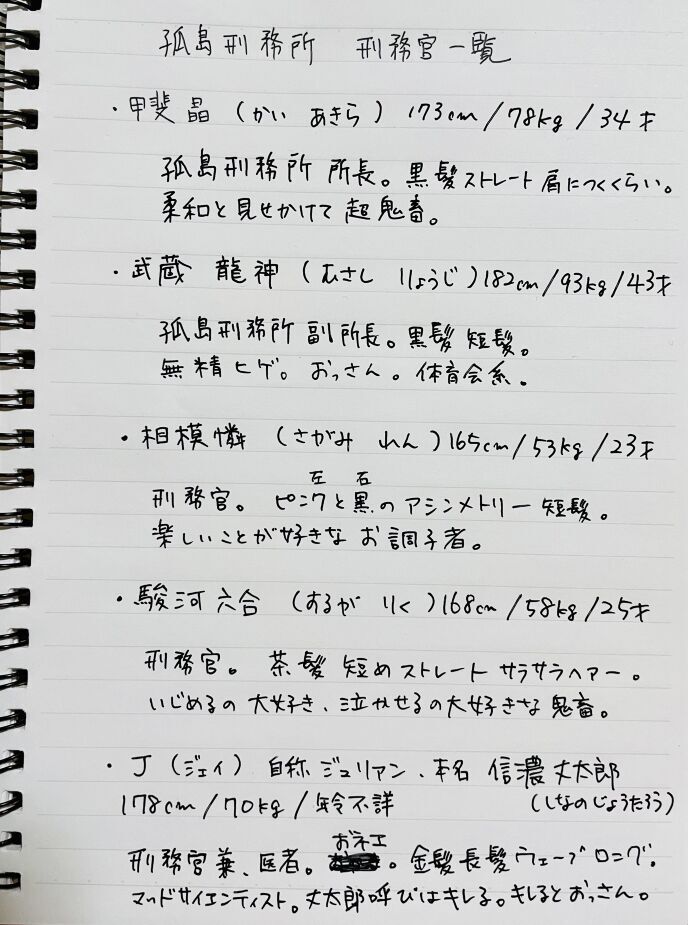 孤島刑務所 刑務官一覧
・甲斐 晶 (かい あきら) 173cm/78kg/34才
孤島刑務所 所長。黒髪ストレート肩につくくらい。
柔和と見せかけて超鬼畜。
・武蔵 龍神 (むさし りょうじ) 182cm/93kg/43才
孤島刑務所 副所長。黒髪短髪。
無精ヒゲ。おっさん。体育会系。
・相模憐 (さがみ れん) 165cm/53kg/23才
左 右
刑務官。ピンクと黒のアシンメトリー短髪。
楽しいことが好きなお調子者。
・駿河六合 (するが りく) 168cm/58kg/25才
刑務官。茶髪 短めストレート サラサラヘアー。
いじめるの大好き、泣かせるの大好きな鬼畜。
・J (ジェイ) 自称ジュリアン、本名 信濃丈太郎
178cm/70kg/年令不詳 (しなのじょうたろう)
おネエ
刑務官兼、医者。 。金髪長髪ウェーブロング。
マッドサイエンティスト。丈太郎呼びはキレる。キレるとおっさん。